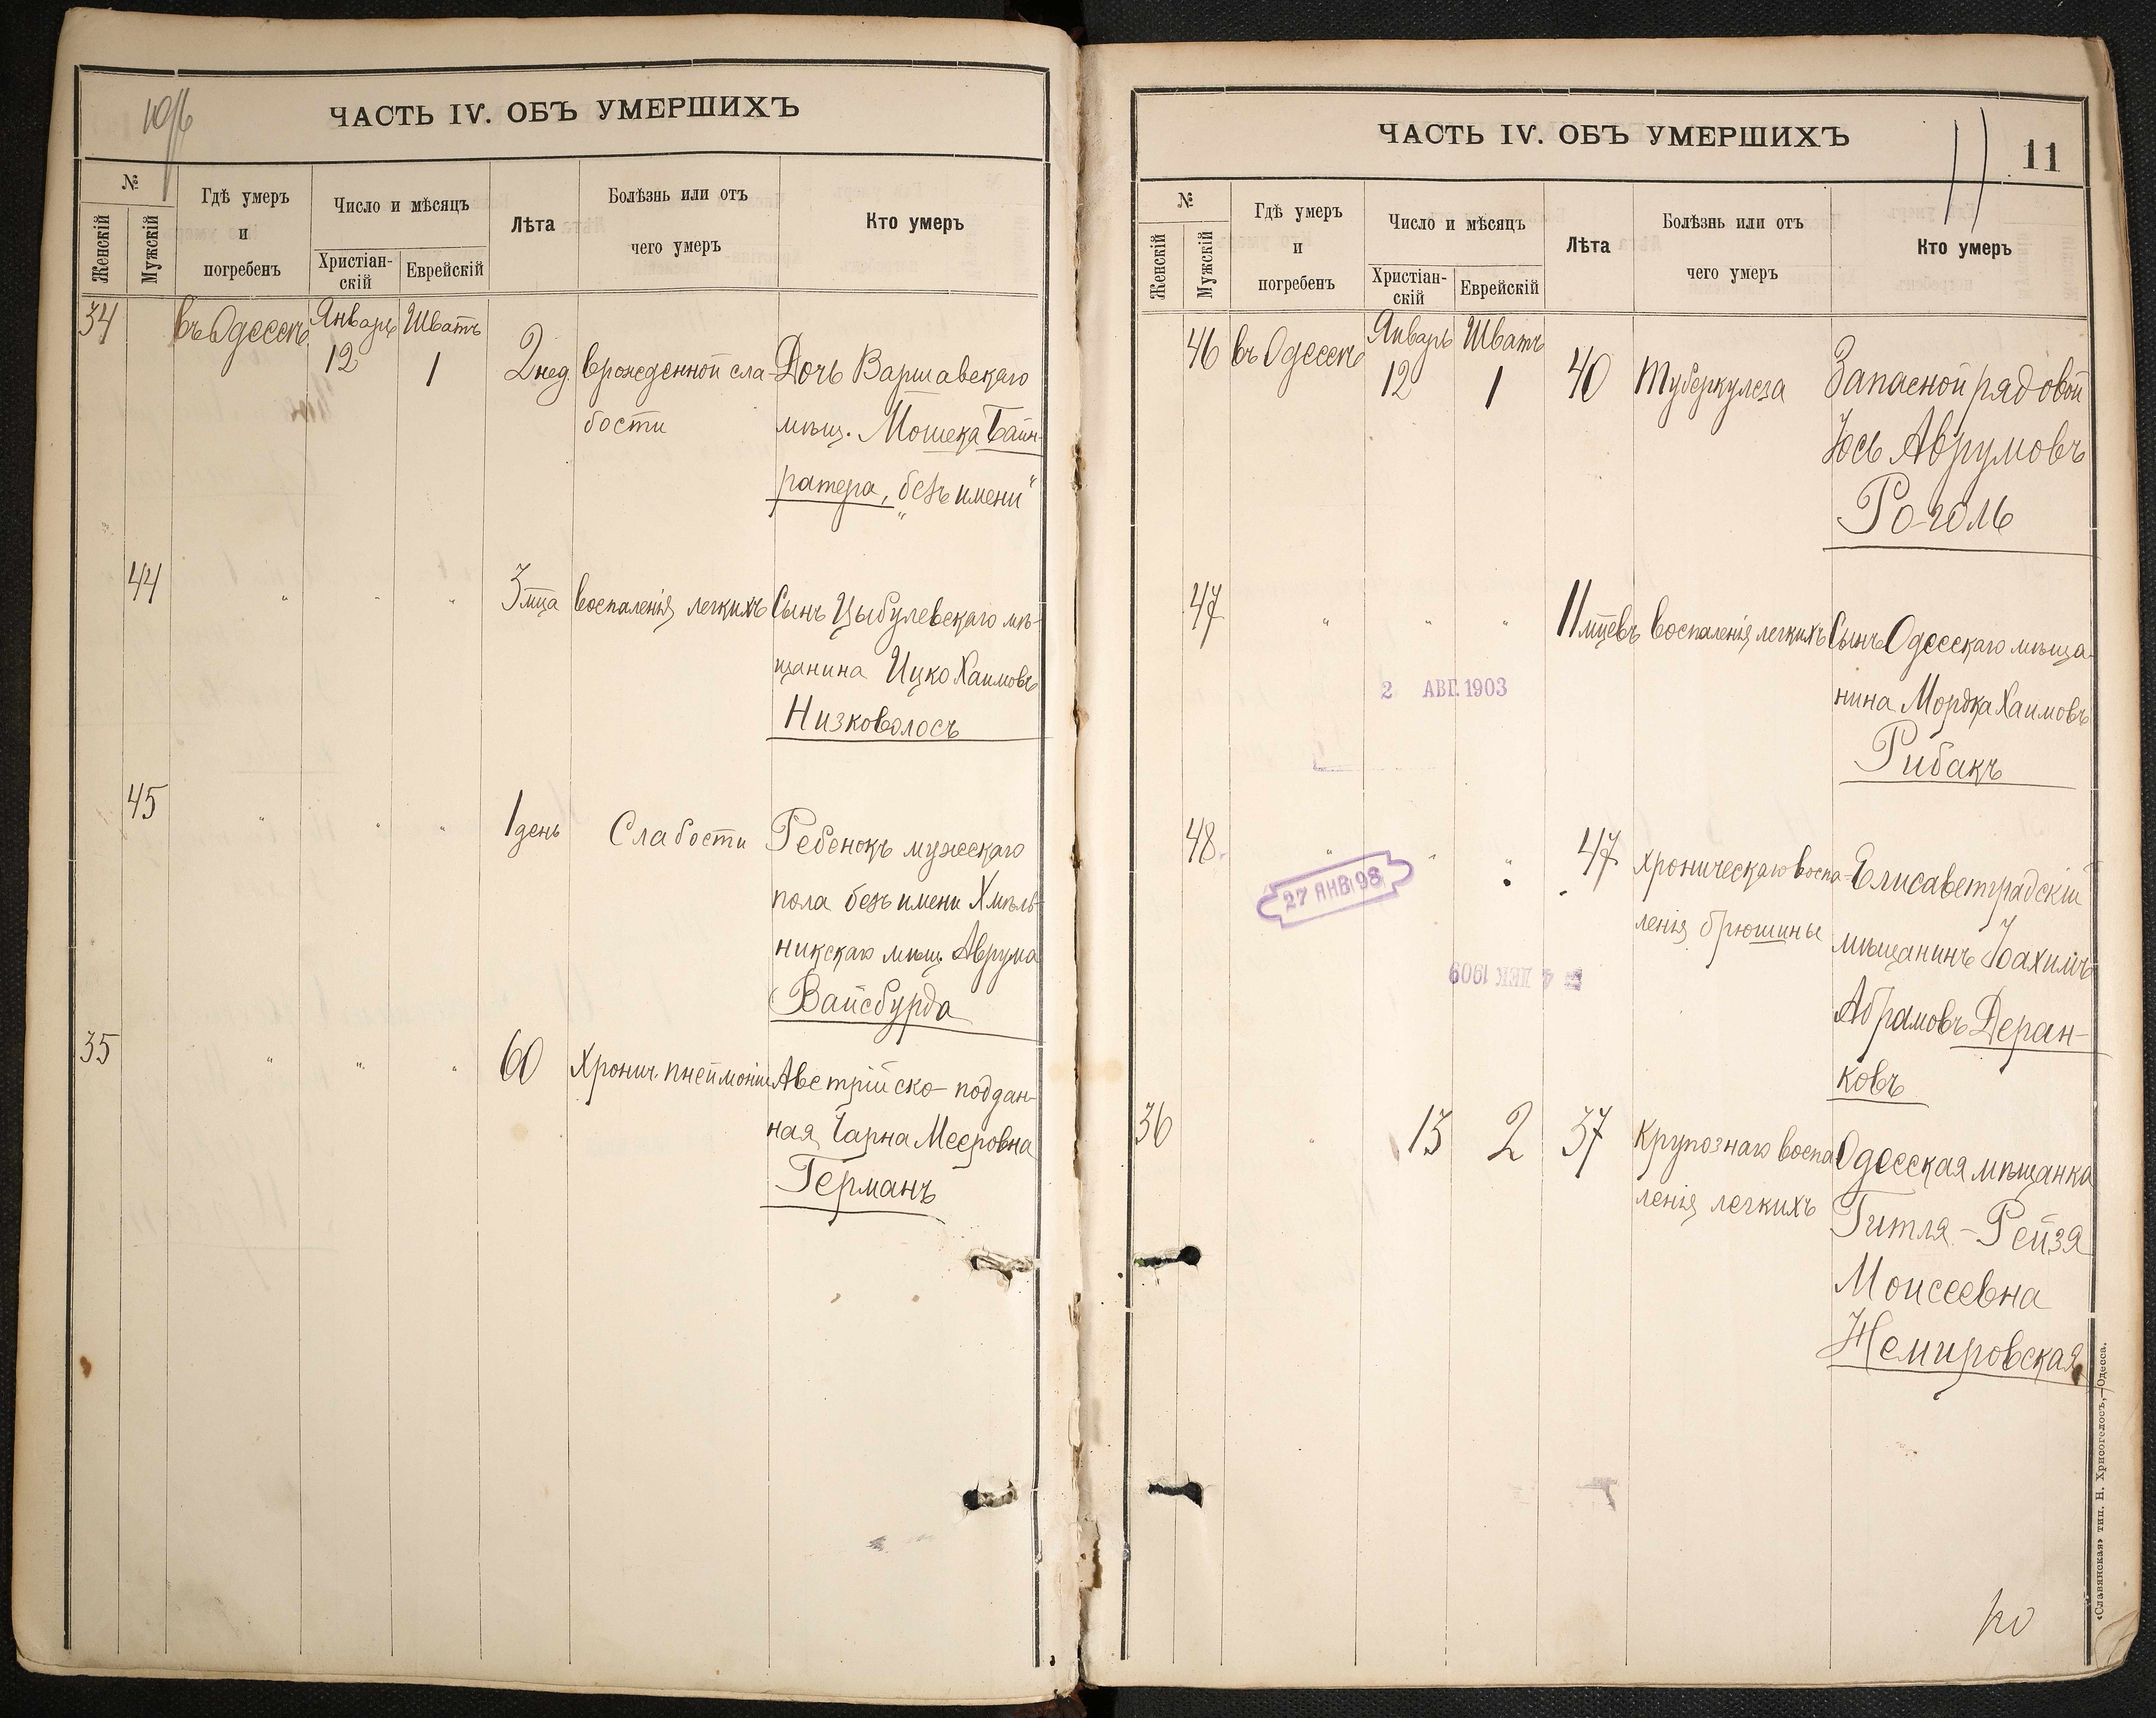 10/б
ЧАСТЬ IV. ОБЪ УМЕРШИХЪ
№
Женскій
Мужскій
Гдѣ умеръ
и
погребенъ
Число и мѣсяцъ
Христіан-
скій
Еврейскій
Лѣта
Болѣзнь или отъ
чего умеръ
Кто умеръ
34 въ Одессѣ Январь Шватъ
12 1 2 нед. врожденной сла- Дочь Варшавскаго
бости мѣщ. Мошека Байн-
ратера, „безъ имени“
44 " " " 3 мца воспаленія легкихъ Сынъ Цыбулевскаго мѣ-
щанина Ицко Хаимовъ
Низковолосъ
45 " " " 1 день Слабости Ребенокъ мужескаго
пола безъ имени Хмѣль-
никскаго мѣщ. Аврума
Вайсбурда
35 " " " 60 Хронич. пнеймоніи Австрійско-поддан-
ная Чарна Мееровна
Германъ
ЧАСТЬ IV. ОБЪ УМЕРШИХЪ
11
11
№
Женскій
Мужскій
Гдѣ умеръ
и
погребенъ
Число и мѣсяцъ
Христіан-
скій
Еврейскій
Лѣта
Болѣзнь или отъ
чего умеръ
Кто умеръ
46 въ Одессѣ Январь Шватъ
12 1 40 Туберкулеза Запасной рядовой
Іось Аврумовъ
Роголь
47 " " " 11 мцевъ воспаленія легкихъ Сынъ Одесскаго мѣща-
2 АВГ. 1903
нина Мордка Хаимовъ
Рибакъ
48 " " " 47 хроническаго воспа- Елисаветградскій
27 ЯНВ 98
ленія брюшины мѣщанинъ Іоахимъ
4 ДЕК 1909
Абрамовъ Деран-
ковъ
36 " 13 2 37 Крупознаго воспа Одесская мѣщанка
ленія легкихъ Гитля-Рейзя
Моисеевна
Немировская
«Славянская» тип. Н. Хрисогелосъ,—Одесса.